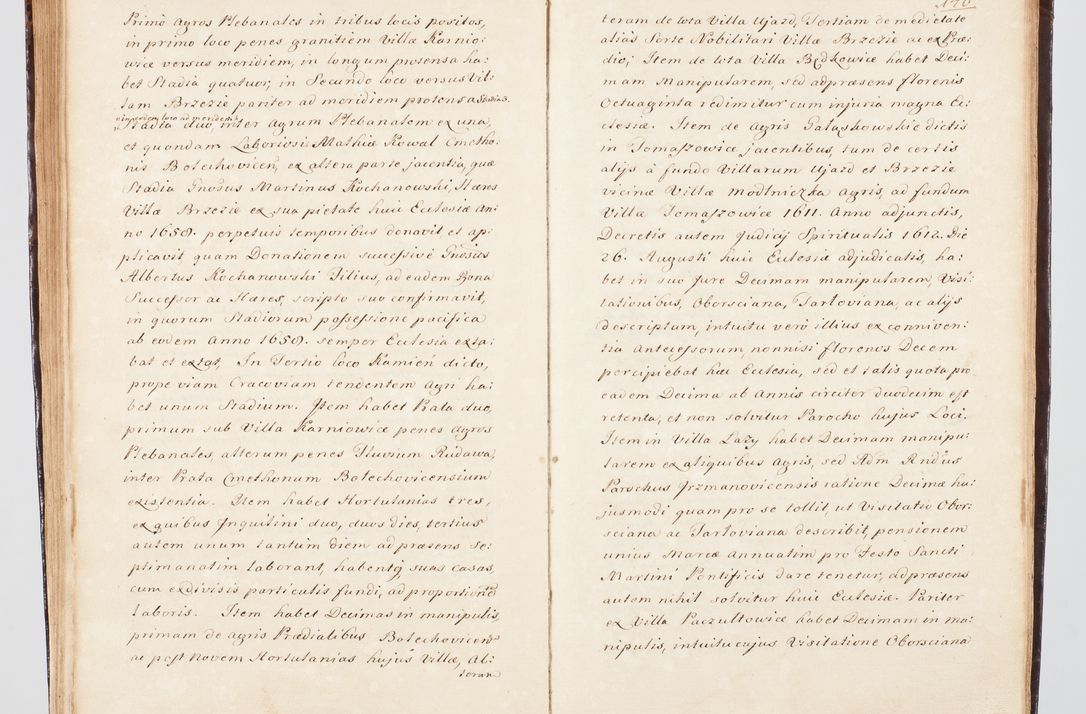 Primò Agros Plebanales in tribus locis positos,
in primo loco penes granitiem Villæ Karnio-
wice versus meridiem, in longum protensa ha-
bet Stadia quatuor, in Secundo loco versus Vil-
lam Brzezie pariter ad meridiem protensa Stadia 3.
Stadia duo, inter Agrum Plebanalem ex una,
et quondam Laboriosi Mathiæ Kowal Cmetho-
nis Bolechovicen, ex altera parte jacentia, quæ
Stadia Gnosus Martinus Kochanowski, Hæres
Villæ Brzezie ex sua pietate huic Ecclesiæ An-
no 1650. perpetuis temporibus donavit et ap-
plicavit quam Donationem successivè Gnosus
Albertus Kochanowski Filius, ad eadem Bona
Successor ac Hæres, scripto suo confirmavit,
in quorum Stadiorum possessione pacifica
ab eodem Anno 1650. semper Ecclesia exta-
bat et extat, In Tertio loco Kamień dicto,
prope viam Cracoviam tendentem Agri ha-
bet unum Stadium. Item habet Prata duo,
primum sub Villa Karniowice penes Agros
Plebanales, alterum penes Fluvium Rudawa,
inter Prata Cmethonum Bolechovicensium
existentia. Item habet Hortulanias tres,
ex quibus Inquilini duo, duos dies, tertius
autem unum tantum diem ad præsens se-
ptimanatim laborant, habentq suas casas,
cum ex divisis particulis fundi, ad proportionem
laboris. Item habet Decimas in manipulis
primam de Agris Prædialibus Bolechovicens
ac post Novem Hortulanias hujus Villæ, Al-
teram
170.
teram de tota Villa Ujazd, Tertiam de medietate
alias Sorte Nobilitari Villæ Brzezie ac ex Præ-
dio; Item de tota Villa Będkowice habet Deci-
mam Manipularem, sed ad præsens florenis
Octuaginta redimitur cum injuria magna Ec-
clesiæ. Item de Agris Gałązkowskie dictis
in Tomaszowice jacentibus, tum de certis
alijs à fundo Villarum Ujazd et Brzezie
vicinæ Villæ Modlniczka Agris, ad fundum
Villæ Tomaszowice 1611. Anno adjunctis,
Decretis autem Judicij Spiritualis 1612. Die
26. Augusti huic Ecclesiæ adjudicatis, ha-
bet in suo Jure Decimam manipularem, Visi-
tationibus, Oborsciana, Tarłoviana, ac alijs
descriptam, intuitu verò illius ex conniven-
tia Antecessorum, nonnisi florenos Decem
percipiebat hæc Ecclesia, sed et talis quota pro
eadem Decima ab Annis circiter duodecim est
retenta, et non solvitur Parocho hujus Loci.
Item in Villa Lazy habet Decimam manipu-
larem ex aliquibus Agris, sed Adm Rndus
Parochus Jrzmanovicensis ratione Decimæ hu-
jusmodi quam pro se tollit, ut Visitatio Obor-
sciana ac Tarłoviana describit, pensionem
unius Marcæ Annuatim pro Festo Sancti
Martini Pontificis dare tenetur, ad præsens
autem nihil solvitur huic Ecclesiæ. Pariter
ex Villa Paczułtowice habet Decimam in ma-
nipulis, intuitu cujus Visitatione Oborsciana